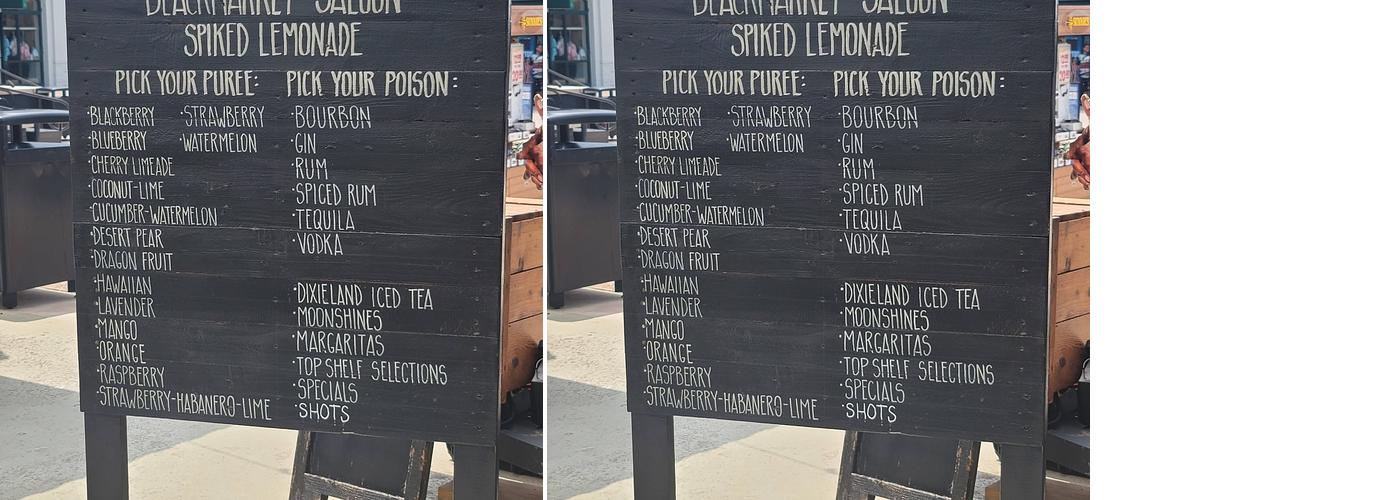 BLACKMARKET SALOON
SPIKED LEMONADE
PICK YOUR PUREE:
·BLACKBERRY
·BLUEBERRY
·CHERRY LIMEADE
·COCONUT-LIME
·CUCUMBER-WATERMELON
·DESERT PEAR
·DRAGON FRUIT
·HAWAIIAN
·LAVENDER
·MANGO
·ORANGE
·RASPBERRY
·STRAWBERRY-HABANERO-LIME
·STRAWBERRY
·WATERMELON
PICK YOUR POISON:
·BOURBON
·GIN
·RUM
·SPICED RUM
·TEQUILA
·VODKA
·DIXIELAND ICED TEA
·MOONSHINES
·MARGARITAS
·TOP SHELF SELECTIONS
·SPECIALS
·SHOTS
BLACKMARKET SALOON
SPIKED LEMONADE
PICK YOUR PUREE:
·BLACKBERRY
·BLUEBERRY
·CHERRY LIMEADE
·COCONUT-LIME
·CUCUMBER-WATERMELON
·DESERT PEAR
·DRAGON FRUIT
·HAWAIIAN
·LAVENDER
·MANGO
·ORANGE
·RASPBERRY
·STRAWBERRY-HABANERO-LIME
·STRAWBERRY
·WATERMELON
PICK YOUR POISON:
·BOURBON
·GIN
·RUM
·SPICED RUM
·TEQUILA
·VODKA
·DIXIELAND ICED TEA
·MOONSHINES
·MARGARITAS
·TOP SHELF SELECTIONS
·SPECIALS
·SHOTS